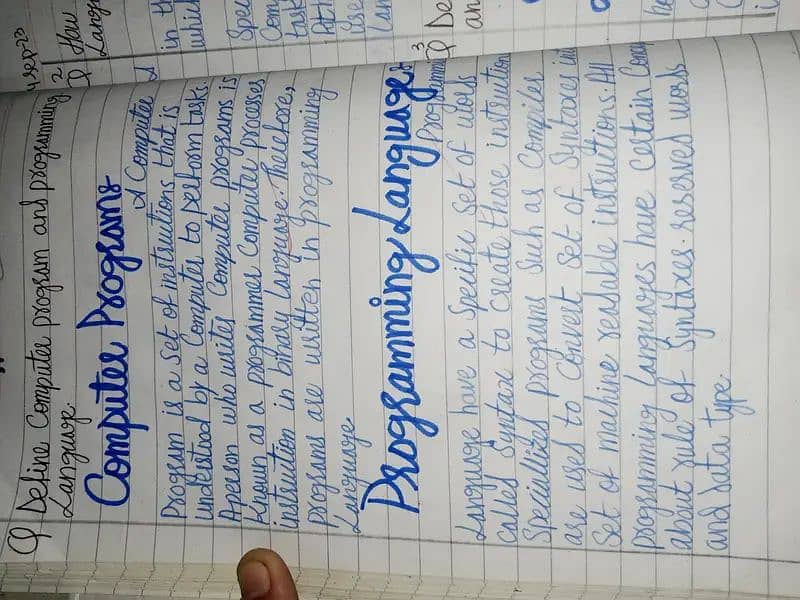 Q Define Computer program and programming
Language.
Computer Programs
A Computer
Program is a set of instructions that is
understood by a Computer to perform task.
A person who writes Computer programs is
Known as a programmer Computer Processes
instruction in binary Language Therefore,
programs are written in programming
Language
Programming Language:
Programming
Language have a Specific Set of words
called Syntax to create those instruction
Specialized programs such as Compiler
are used to convert set of Syntaxes int
Set of machine readable instructions. All
programming languages have certain Conc
about rule of Syntaxes. reserved words
and data type.
2
Q How
Langu
3
Q De
an